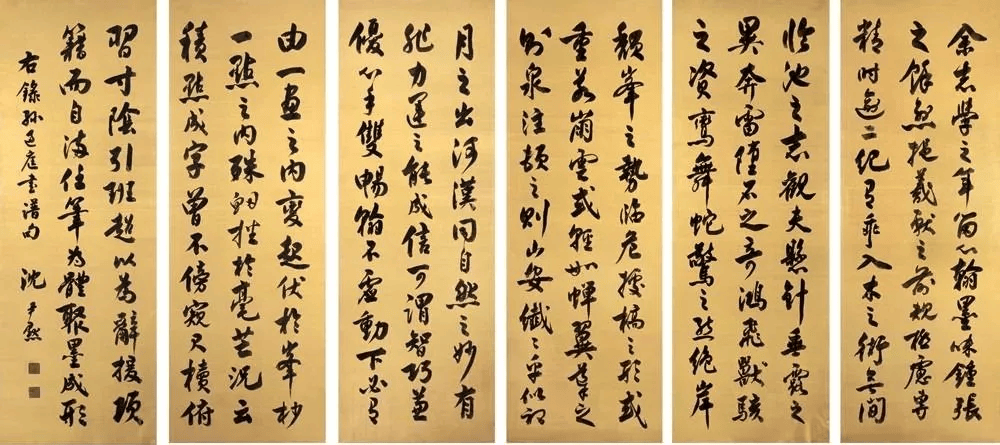 余志學之年留心翰墨味鍾張
之餘烈挹羲獻之前規極慮專
精時逾二紀有乖入木之術無間
臨池之志觀夫懸針垂露之
異奔雷墜石之奇鴻飛獸駭
之資鸞舞蛇驚之態絕岸
頹峯之勢臨危據槁之形或
重若崩雲或輕如蟬翼導之
則泉注頓之則山安纖纖乎似初
月之出河漢同自然之妙有
非力運之能成信可謂智巧兼
優心手雙暢翰不虛動下必有
由一畫之內變起伏於峯杪
一點之內殊衄挫於毫芒況云
積點成字曾不傍窺尺牘俯
習寸陰引班超以為辭援項
籍而自滿任筆為體聚墨成形
右錄孫過庭書譜句 沈尹默